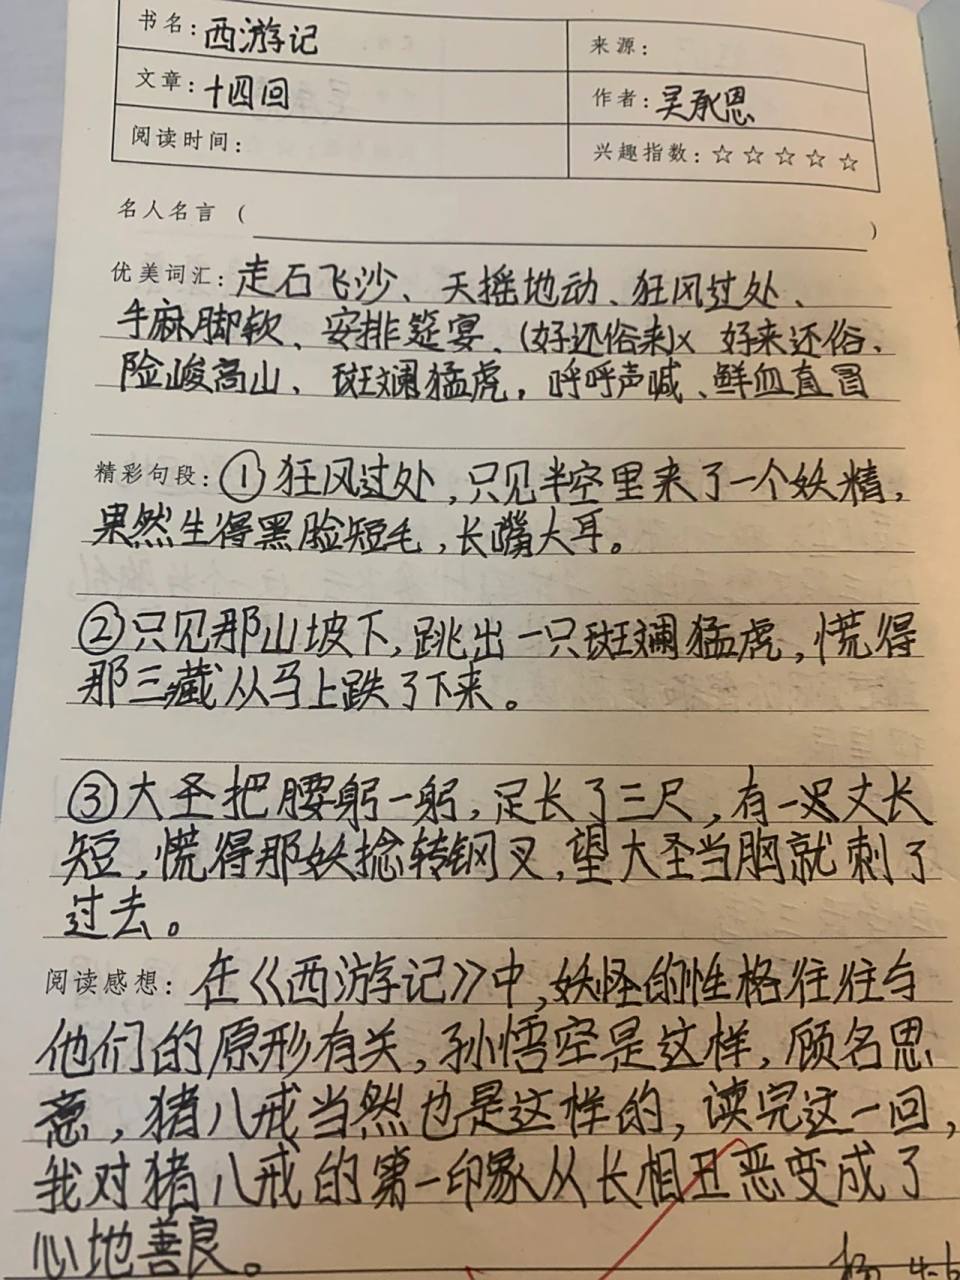 书名：西游记 来源：
文章：十四回 作者：吴承恩
阅读时间： 兴趣指数：☆☆☆☆☆
名人名言（ ）
优美词汇：走石飞沙、天摇地动、狂风过处、
手麻脚软、安排筵宴、(好还俗来)x 好来还俗、
险峻高山、斑斓猛虎，呼呼声喊、鲜血直冒
精彩句段：①狂风过处，只见半空里来了一个妖精，
果然生得黑脸短毛，长嘴大耳。
②只见那山坡下，跳出一只斑斓猛虎，慌得
那三藏从马上跌了下来。
③大圣把腰躬一躬，足长了三尺，有一丈长
短，慌得那妖捻转钢叉，望大圣当胸就刺了
过去。
阅读感想：在《西游记》中，妖怪的性格往往与
他们的原形有关，孙悟空是这样，顾名思
意，猪八戒当然也是这样的，读完这一回，
我对猪八戒的第一印象从长相丑恶变成了
心地善良。